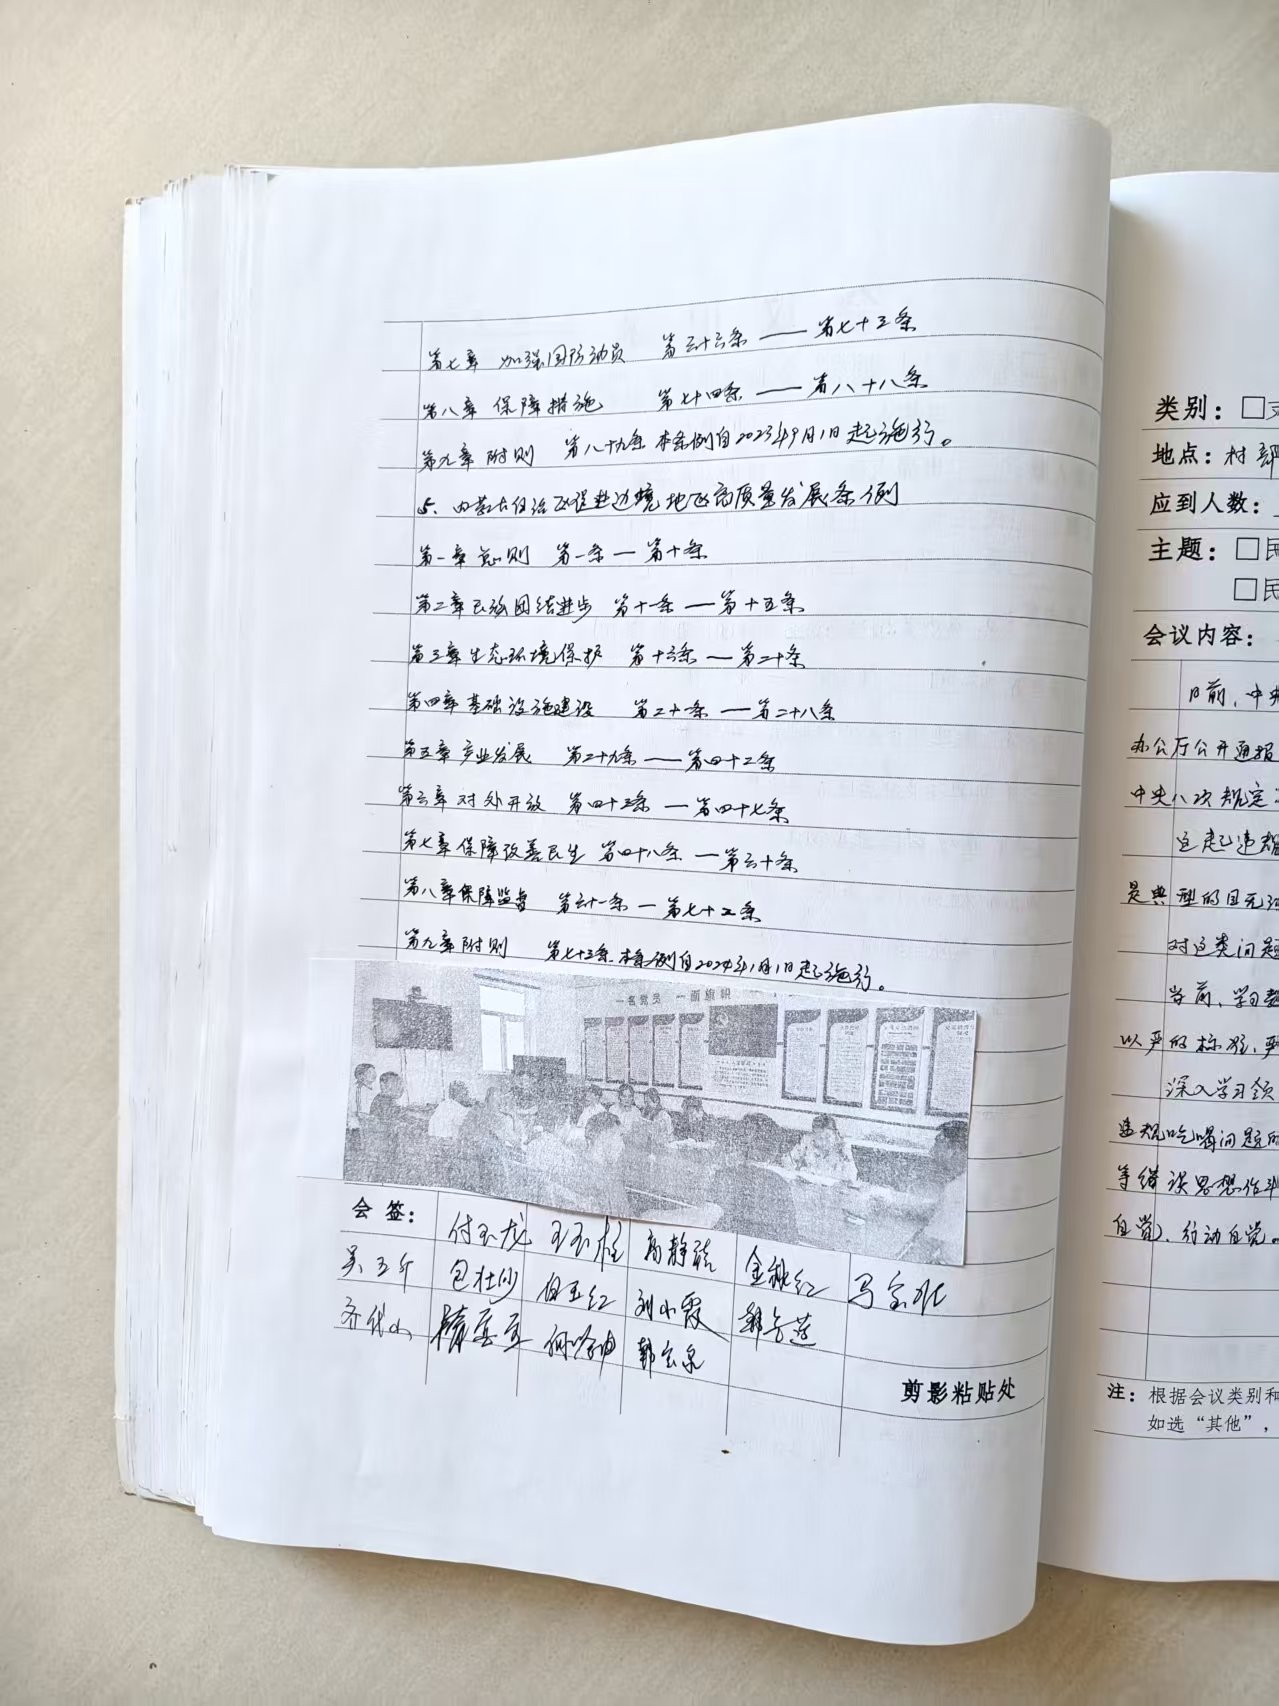 第七章 加强国防动员 第六十六条——第七十三条
第八章 保障措施 第七十四条——第八十八条
第九章 附则 第八十九条 本条例自2023年9月1日起施行。
5、内蒙古自治区促进边境地区高质量发展条例
第一章 总则 第一条—第十条
第二章民族团结进步 第十一条—第十五条
第三章生态环境保护 第十六条—第二十条
第四章基础设施建设 第二十一条—第二十八条
第五章产业发展 第二十九条——第四十二条
第六章对外开放 第四十三条—第四十七条
第七章保障改善民生 第四十八条—第六十条
第八章保障监督 第六十一条—第七十二条
第九章附则 第七十三条 本条例自2024年1月1日起施行。
一名党员 一面旗帜
会签: 付玉龙 王玉柱 金秋红
白玉红 刘小霞
韩宝泉
剪影粘贴处
类别: □
地点: 村部
应到人数:
主题: □民
□民
会议内容:
日前,中央
办公厅公开通报
中央八次规定
这起违规
是典型的目无
对这类问题
当前,学习
以严的标准,
深入学习领
违规吃喝问题的
等错误思想作斗
自觉、行动自觉。
注: 根据会议类别和
如选“其他”,